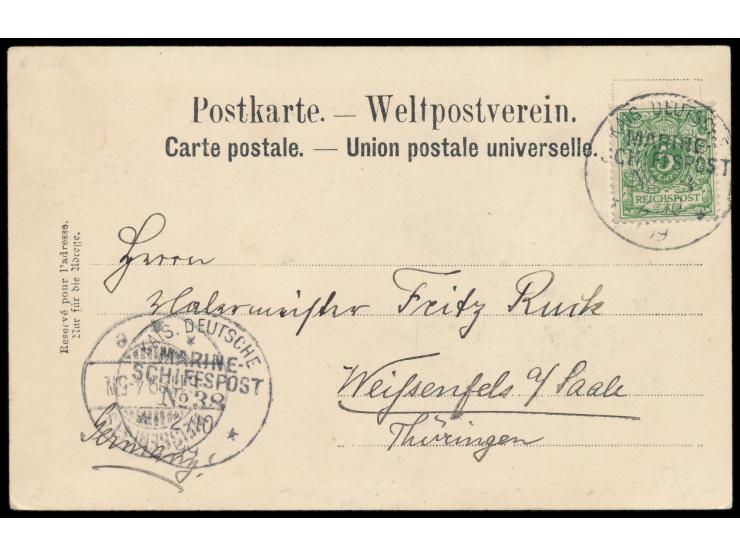 Postkarte. — Weltpostverein.
Carte postale. — Union postale universelle.
DEUTSCHE
MARINE-
SCHIFFSPOST
5
REICHSPOST
Reservé pour l'adresse.
Nur für die Adresse.
Herrn
Malermeister Fritz Ruck
Weißenfels a/Saale
Thüringen
KAIS. DEUTSCHE
MARINE-
SCHIFFSPOST
No 38
2/10
Germany.